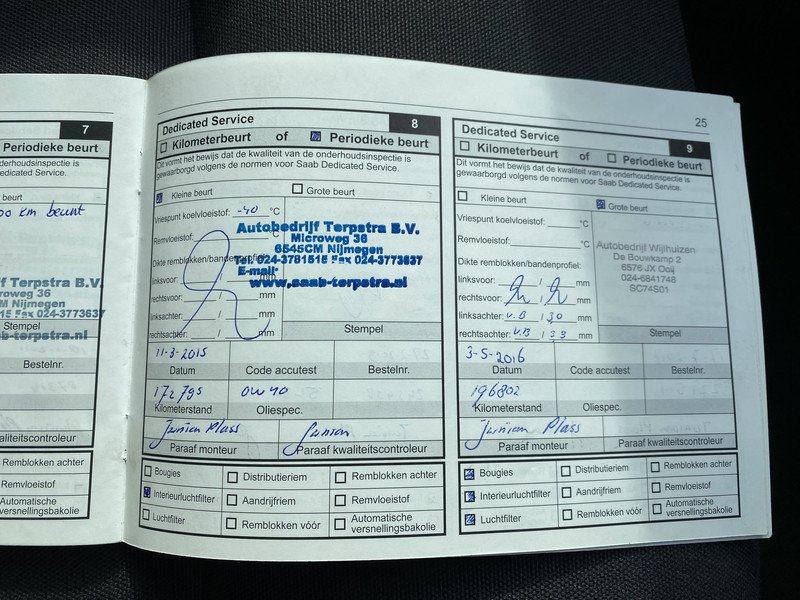 7
Periodieke beurt
onderhoudsinspectie is
Dedicated Service.
beurt
00 km beurt
Terpstra B.V.
Microweg 36
6545CM Nijmegen
024-3773637
saab-terpstra.nl
Stempel
Bestelnr.
kwaliteitscontroleur
Remblokken achter
Remvloeistof
Automatische
versnellingsbakolie
Dedicated Service
8
Kilometerbeurt of Periodieke beurt
Dit vormt het bewijs dat de kwaliteit van de onderhoudsinspectie is
gewaarborgd volgens de normen voor Saab Dedicated Service.
Kleine beurt Grote beurt
Vriespunt koelvloeistof: -40 °C
Remvloeistof: °C
Dikte remblokken/bandenprofiel:
linksvoor: / mm
rechtsvoor: / mm
linksachter: / mm
rechtsachter: / mm
Autobedrijf Terpstra B.V.
Microweg 36
6545CM Nijmegen
Tel 024-3781515 Fax 024-3773637
E-mail:
www.saab-terpstra.nl
Stempel
11-3-2015
Datum Code accutest Bestelnr.
172795 0W40
Kilometerstand Oliespec.
Paraaf monteur Paraaf kwaliteitscontroleur
Bougies Distributieriem Remblokken achter
Interieurluchtfilter Aandrijfriem Remvloeistof
Luchtfilter Remblokken vóór Automatische
versnellingsbakolie
25
Dedicated Service
9
Kilometerbeurt of Periodieke beurt
Dit vormt het bewijs dat de kwaliteit van de onderhoudsinspectie is
gewaarborgd volgens de normen voor Saab Dedicated Service.
Kleine beurt Grote beurt
Vriespunt koelvloeistof: °C
Remvloeistof: °C
Dikte remblokken/bandenprofiel:
linksvoor: / mm
rechtsvoor: / mm
linksachter: V.B / 30 mm
rechtsachter: V.B / 33 mm
Autobedrijf Wijlhuizen
De Bouwkamp 2
6576 JX Ooij
024-6841748
SC74S01
Stempel
3-5-2016
Datum Code accutest Bestelnr.
196802
Kilometerstand Oliespec.
Paraaf monteur Paraaf kwaliteitscontroleur
Bougies Distributieriem Remblokken achter
Interieurluchtfilter Aandrijfriem Remvloeistof
Luchtfilter Remblokken vóór Automatische
versnellingsbakolie